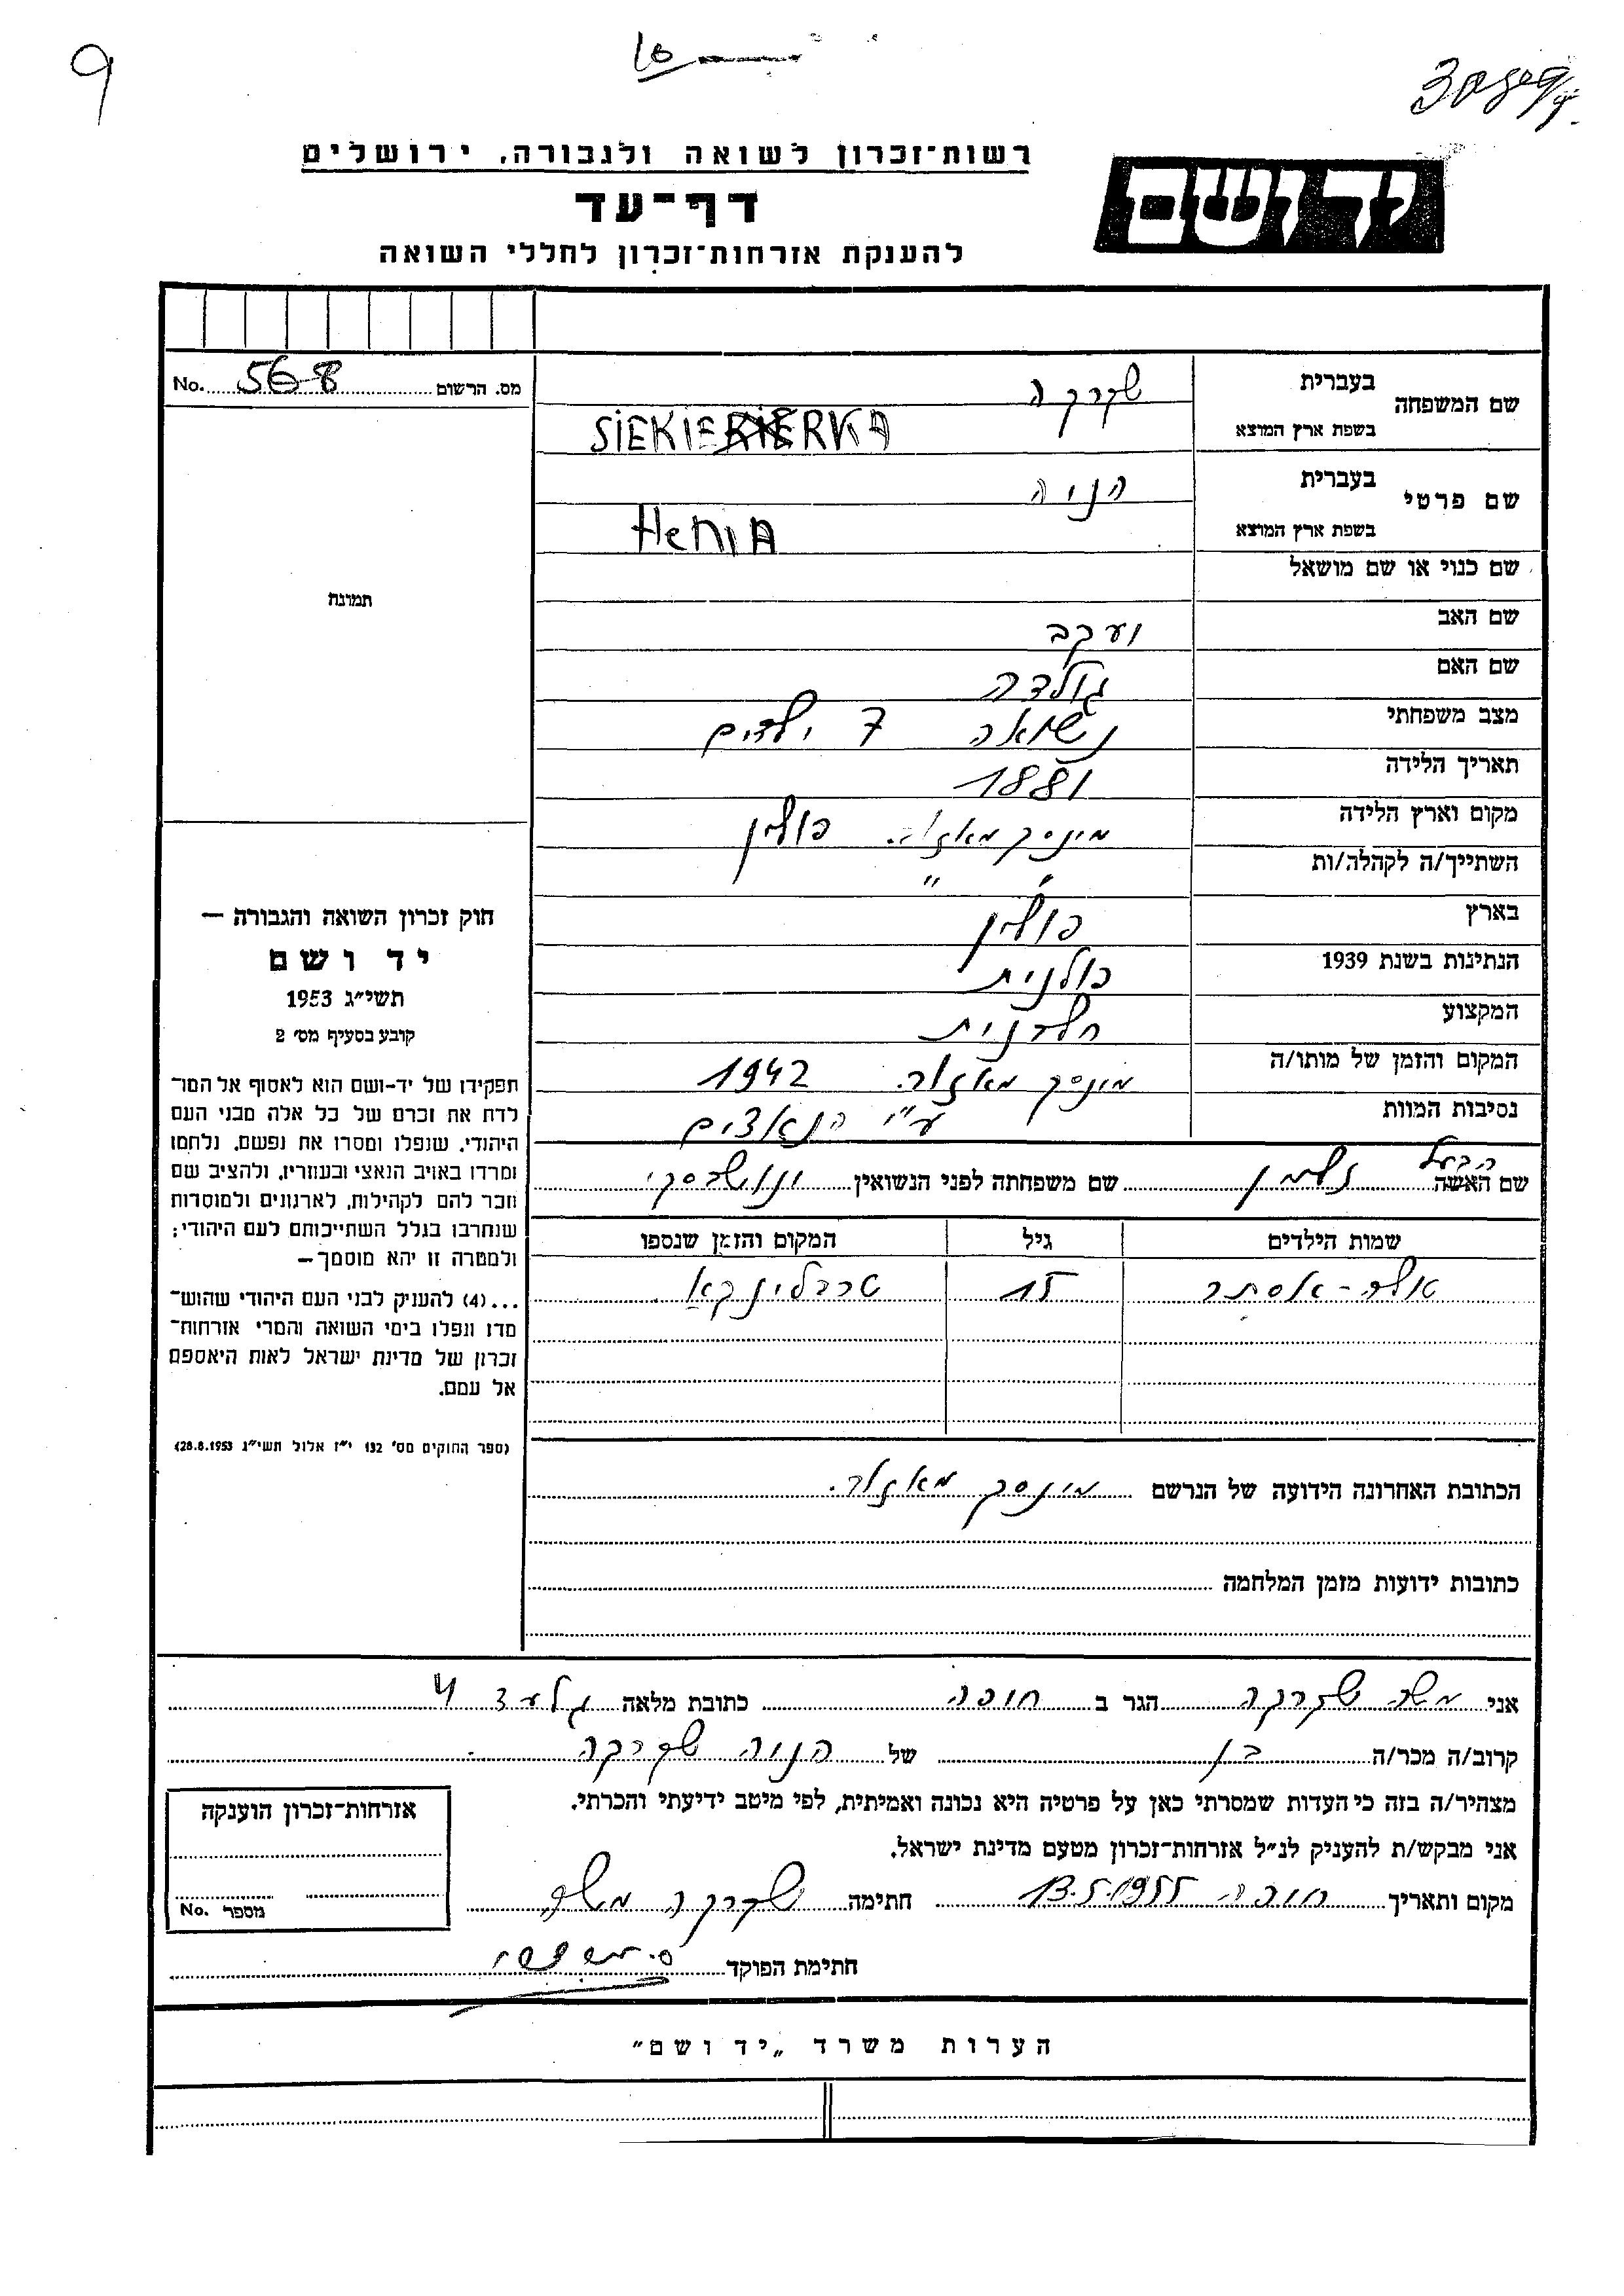 9
רשות־זכרון לשואה ולגבורה, ירושלים
יד ושם
דף־עד
להענקת אזרחות־זכרון לחללי השואה
No. 568 מס. הרשום
שם המשפחה בעברית שקרקה
בשפת ארץ המוצא SiEKIERKA
שם פרטי בעברית הניה
בשפת ארץ המוצא HeniA
שם כנוי או שם מושאל
שם האב יעקב
שם האם גולדה
מצב משפחתי נשואה 7 ילדים
תאריך הלידה 1881
מקום וארץ הלידה מינסק מאזוב. פולין
השתייך/ה לקהלה/ות " "
בארץ פולין
הנתינות בשנת 1939 פולנית
המקצוע
המקום והזמן של מותו/ה מינסק מאזוב. 1942
נסיבות המוות ע"י הנאצים
תמונה
חוק זכרון השואה והגבורה —
יד ושם
תשי״ג 1953
קובע בסעיף מס׳ 2
תפקידו של יד-ושם הוא לאסוף אל המו־
לדת את זכרם של כל אלה מבני העם
היהודי, שנפלו ומסרו את נפשם, נלחמו
ומרדו באויב הנאצי ובעוזריו, ולהציב שם
וזכר להם לקהילות, לארגונים ולמוסדות
שנחרבו בגלל השתייכותם לעם היהודי;
ולמטרה זו יהא מוסמך —
...(4) להעניק לבני העם היהודי שהוש־
מדו ונפלו בימי השואה והמרי אזרחות־
זכרון של מדינת ישראל לאות היאספם
אל עמם.
(ספר החוקים מס׳ 132 י״ז אלול תשי״ג 28.8.1953)
הבעל
שם האשה זלמן שם משפחתה לפני הנשואין
שמות הילדים גיל המקום והזמן שנספו
אסתר 15 טרבלינקא
הכתובת האחרונה הידועה של הנרשם מינסק מאזוב.
כתובות ידועות מזמן המלחמה
אני משה שקרקה הגר ב חיפה כתובת מלאה גלעד 4
קרוב/ה מכר/ה בן של הניה שקרקה
מצהיר/ה בזה כי העדות שמסרתי כאן על פרטיה היא נכונה ואמיתית, לפי מיטב ידיעתי והכרתי.
אני מבקש/ת להעניק לנ״ל אזרחות־זכרון מטעם מדינת ישראל.
מקום ותאריך חיפה 13.5.1955 חתימה שקרקה משה
חתימת הפוקד
אזרחות־זכרון הוענקה
No. מספר
הערות משרד „יד ושם״